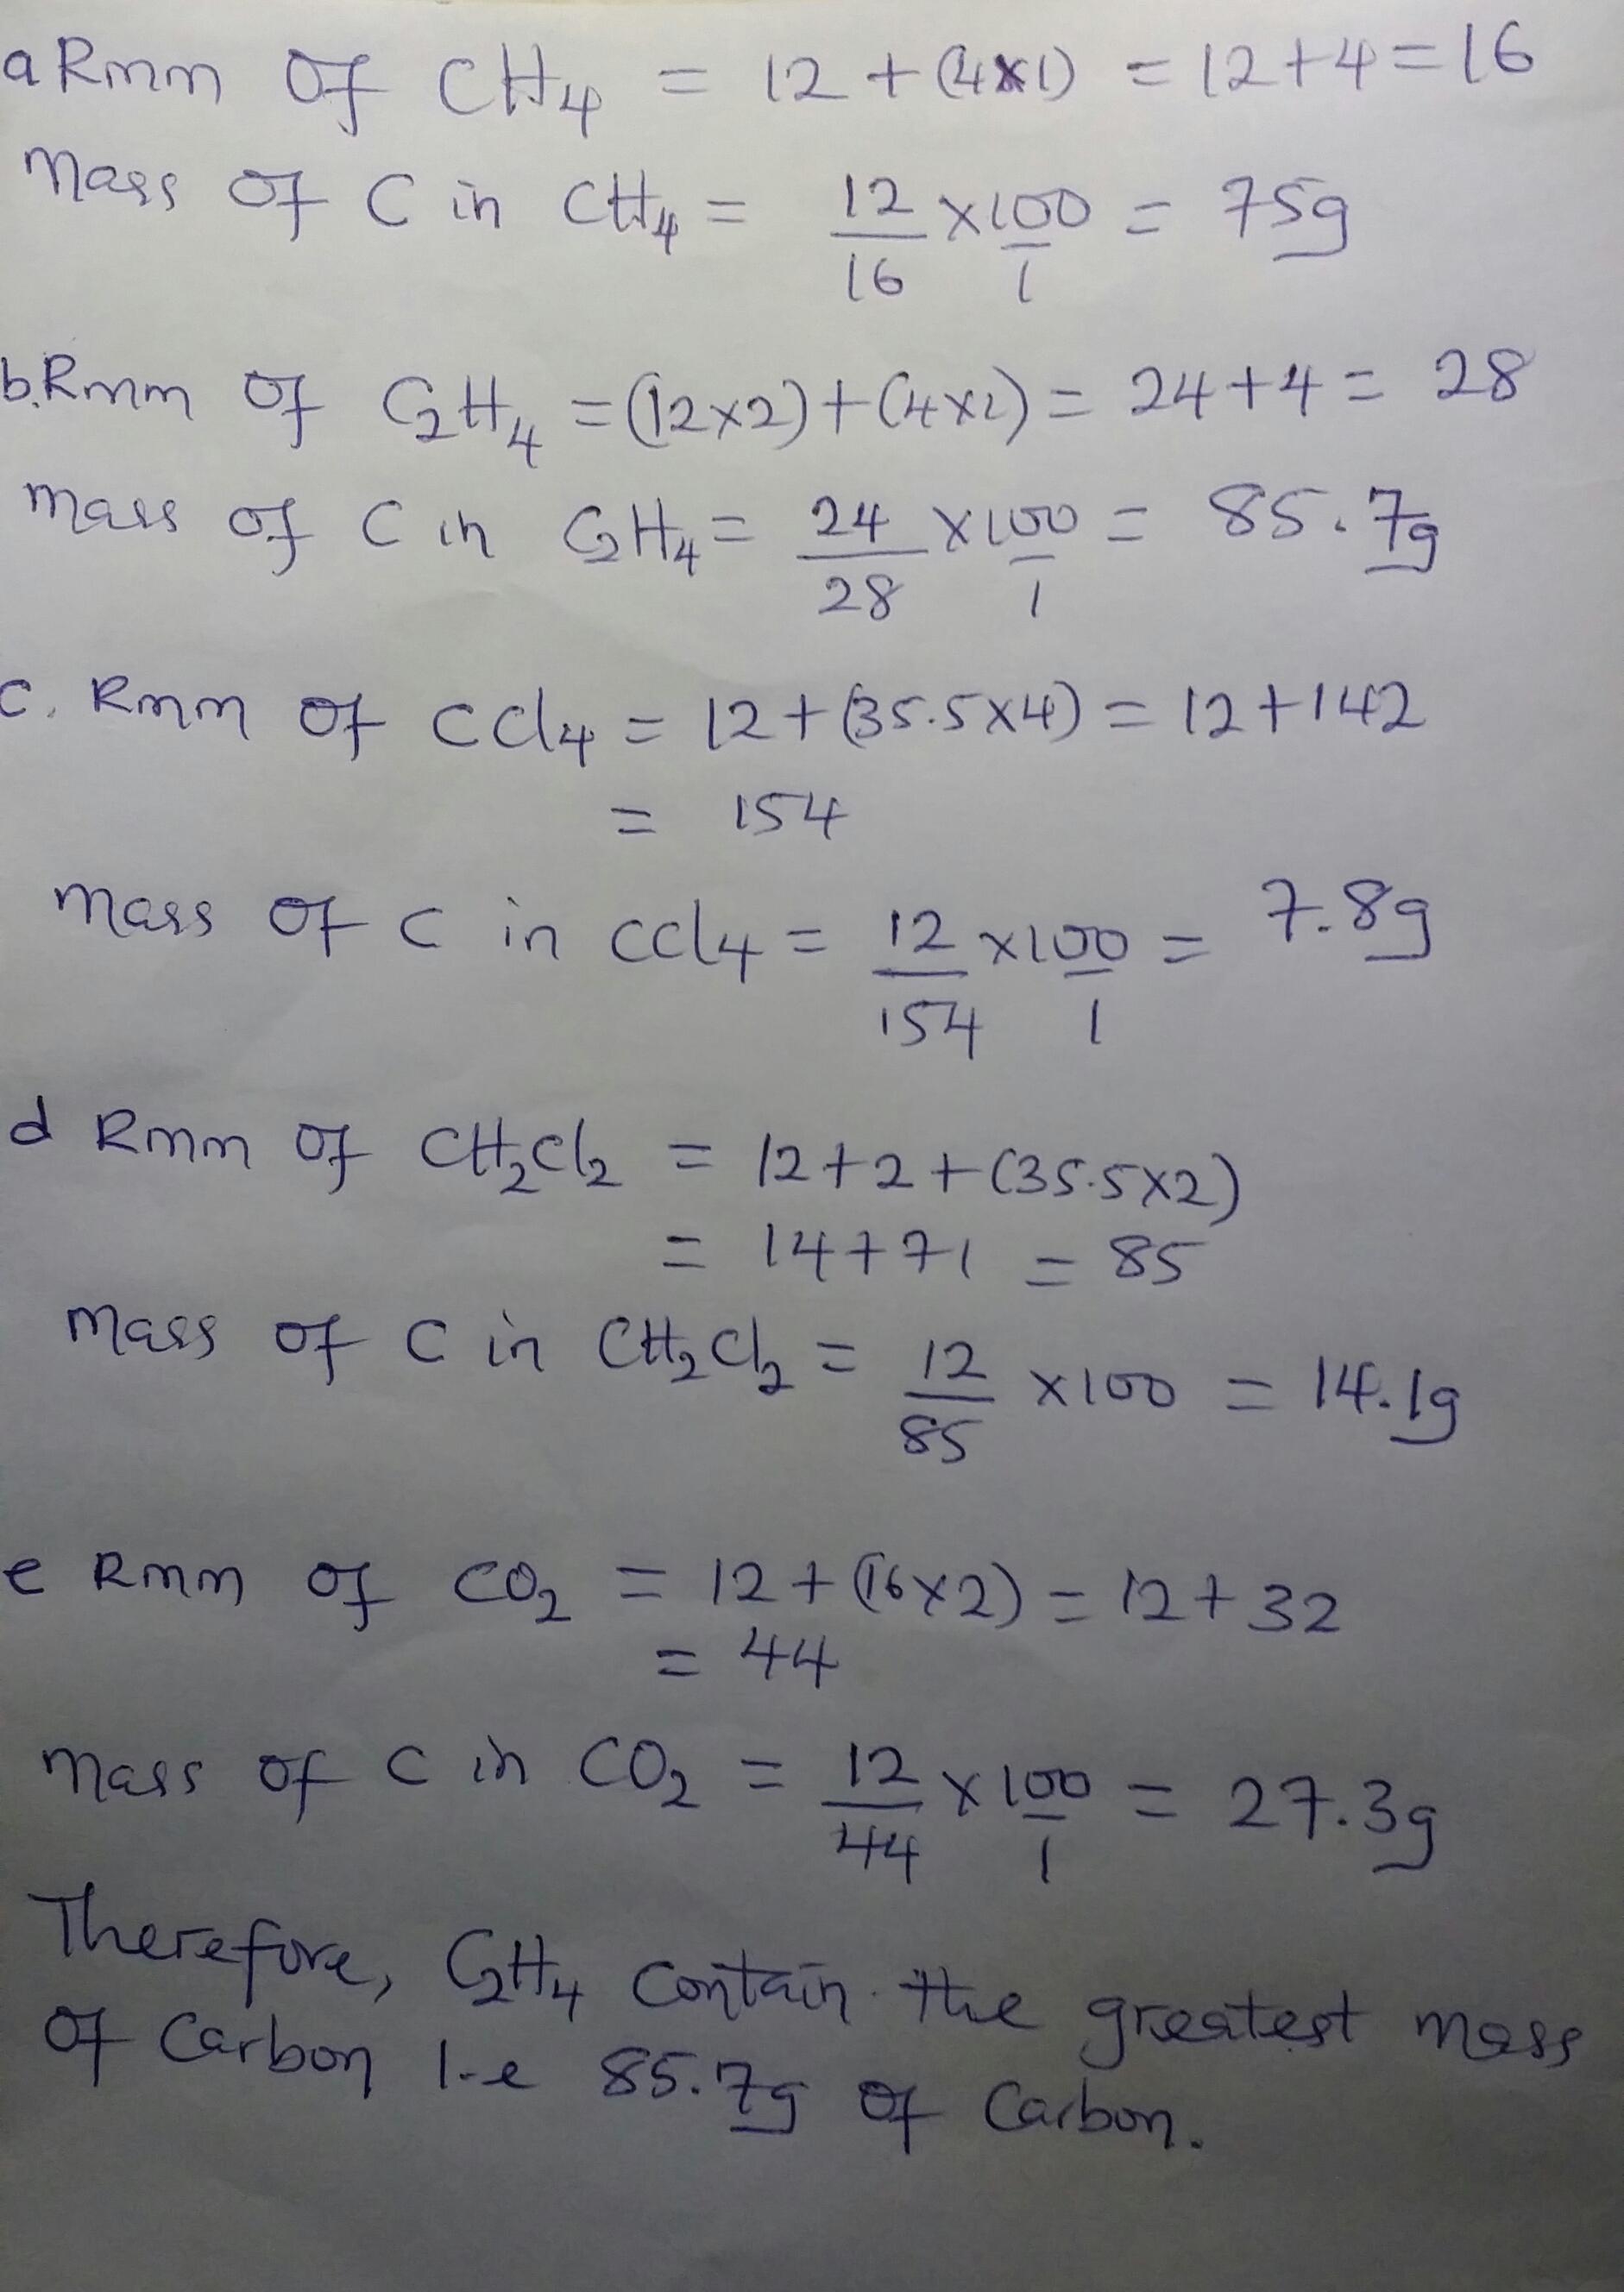 a Rmm of CH₄ = 12 + (4x1) = 12+4 = 16
Mass of C in CH₄ = 12/16 x 100/1 = 75g
b. Rmm of C₂H₄ = (12x2) + (4x1) = 24+4 = 28
Mass of C in C₂H₄ = 24/28 x 100/1 = 85.7g
C. Rmm of CCl₄ = 12+(35.5x4) = 12+142
= 154
Mass of C in CCl₄ = 12/154 x 100/1 = 7.8g
d Rmm of CH₂Cl₂ = 12+2+(35.5x2)
= 14+71 = 85
Mass of C in CH₂Cl₂ = 12/85 x100 = 14.1g
e Rmm of CO₂ = 12+(16x2) = 12+32
= 44
Mass of C in CO₂ = 12/44 x 100/1 = 27.3g
Therefore, C₂H₄ contain the greatest mass
of Carbon I.e 85.7g of Carbon.